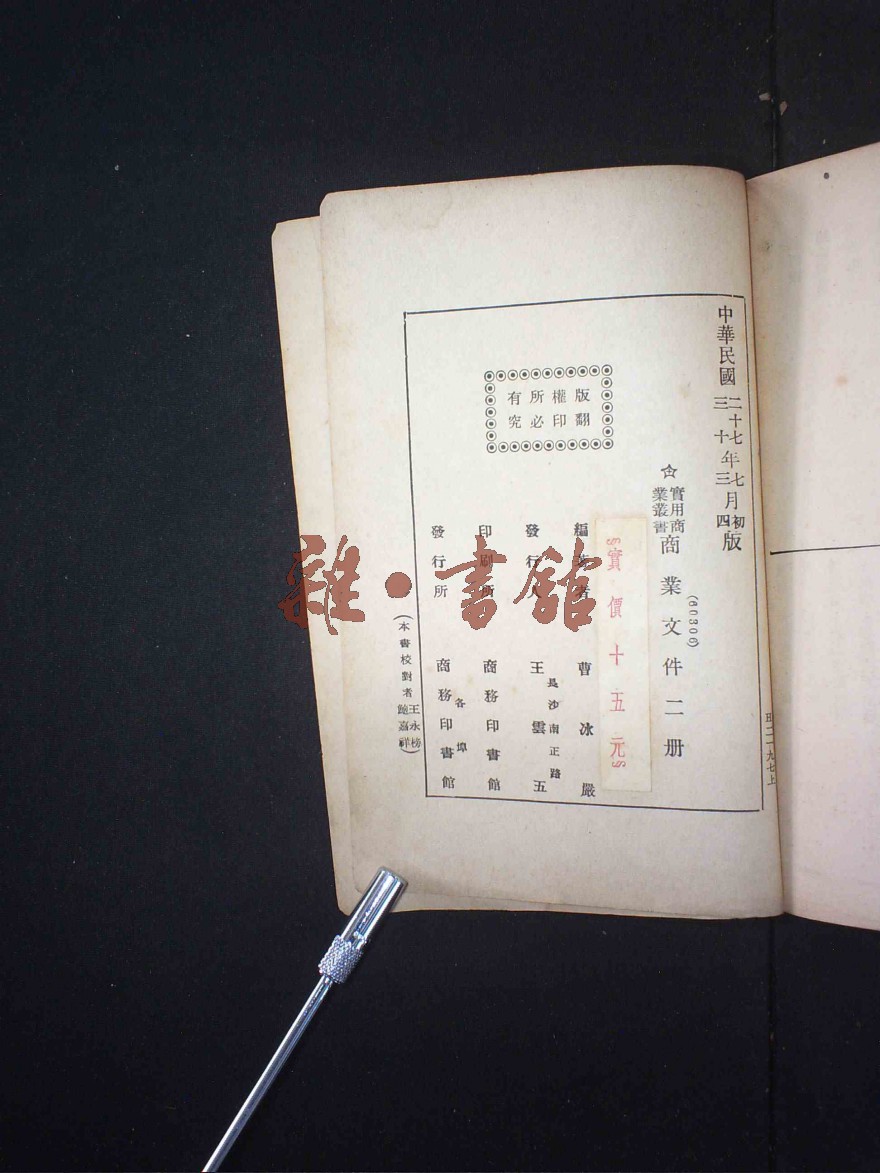 中華民國二十七年七月初版
三十年三月四版
實用商業叢書
商業文件二册
(60306)
實價十五元
編著者 曹冰嚴
發行人 王雲五
長沙南正路
印刷所 商務印書館
各埠
發行所 商務印書館
(本書校對者 王永榜 鮑嘉祥)
版權所有
翻印必究
雜·書館